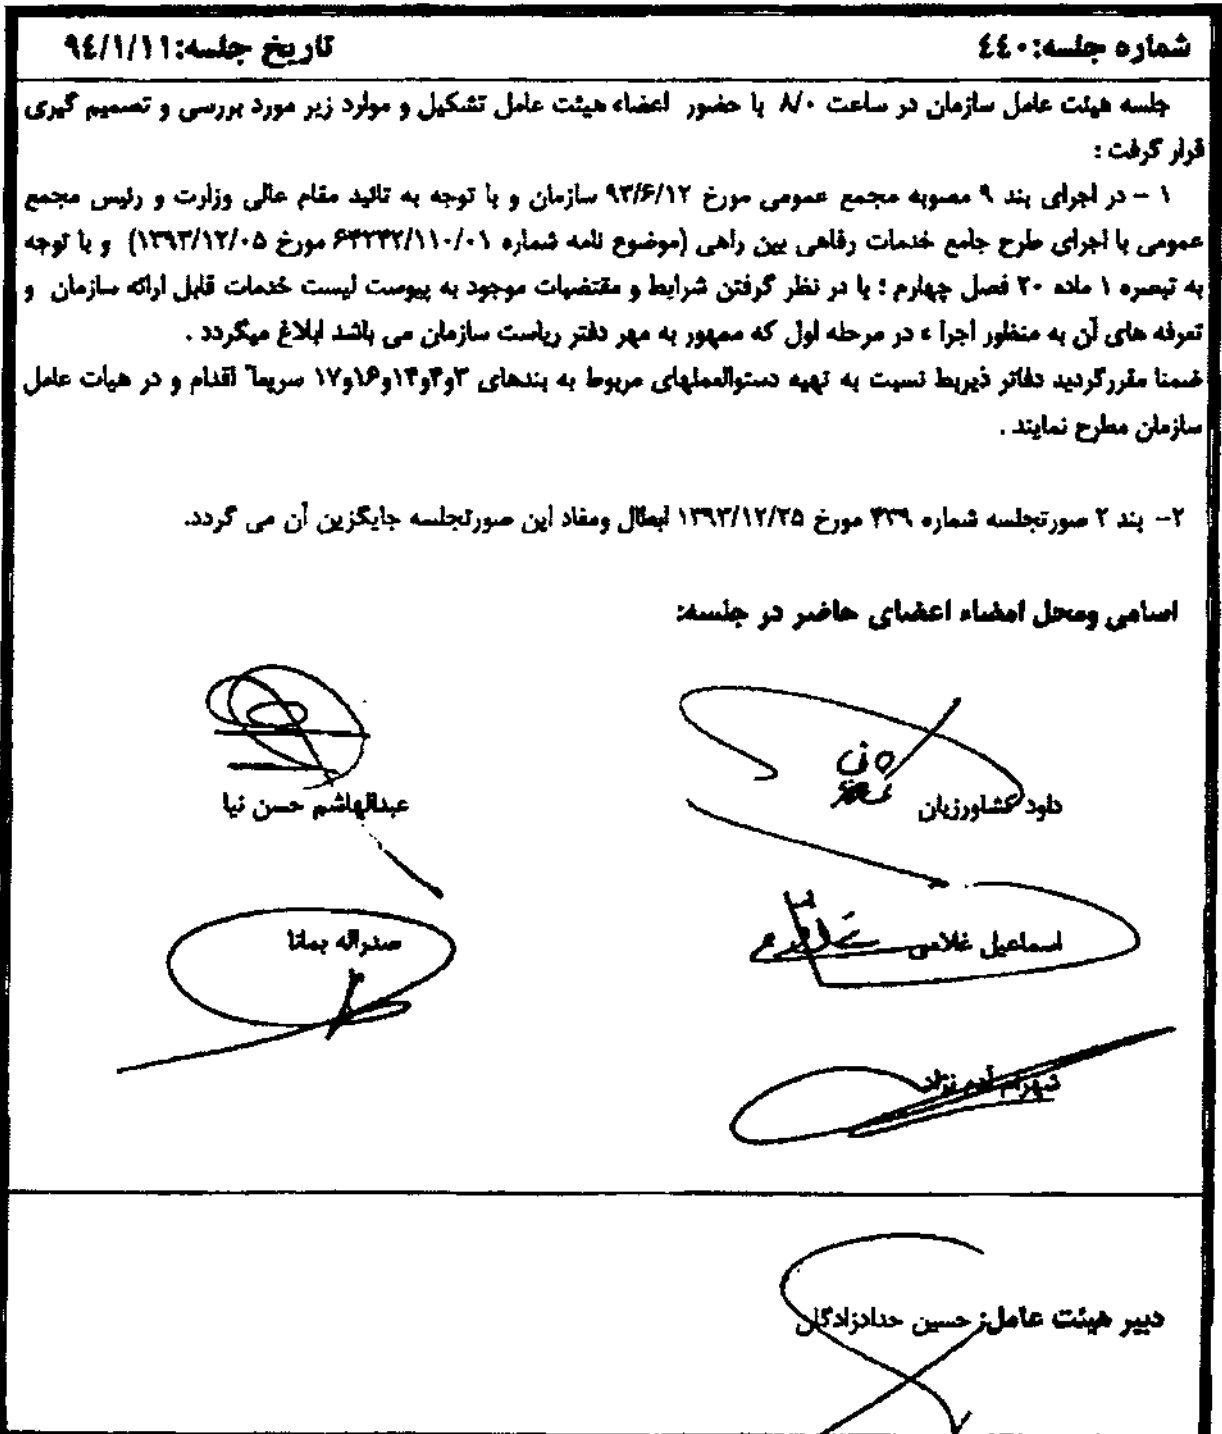 شماره جلسه:٤٤٠
تاریخ جلسه:٩٤/١/١١
جلسه هیئت عامل سازمان در ساعت ۸/۰ با حضور اعضاء هیئت عامل تشکیل و موارد زیر مورد بررسی و تصمیم گیری
قرار گرفت :
۱ – در اجرای بند ۹ مصوبه مجمع عمومی مورخ ۹۳/۶/۱۲ سازمان و با توجه به تائید مقام عالی وزارت و رئیس مجمع
عمومی با اجرای طرح جامع خدمات رفاهی بین راهی (موضوع نامه شماره ۶۴۲۴۲/۱۱۰/۰۱ مورخ ۱۳۹۳/۱۲/۰۵) و با توجه
به تبصره ۱ ماده ۲۰ فصل چهارم ؛ با در نظر گرفتن شرایط و مقتضیات موجود به پیوست لیست خدمات قابل ارائه سازمان و
تعرفه های آن به منظور اجرا ء در مرحله اول که ممهور به مهر دفتر ریاست سازمان می باشد ابلاغ میگردد .
ضمنا مقررگردید دفاتر ذیربط نسبت به تهیه دستوالعملهای مربوط به بندهای ۳و۴و۱۴و۱۶و۱۷ سریعاً اقدام و در هیات عامل
سازمان مطرح نمایند .
۲– بند ۲ صورتجلسه شماره ۴۳۹ مورخ ۱۳۹۳/۱۲/۲۵ ابطال ومفاد این صورتجلسه جایگزین آن می گردد.
اسامی ومحل امضاء اعضای حاضر در جلسه:
داود کشاورزیان
عبدالهاشم حسن نیا
اسماعیل غلامی
صدراله بمانا
شهرام آدم نژاد
دبیر هیئت عامل: حسین حدادزادگان